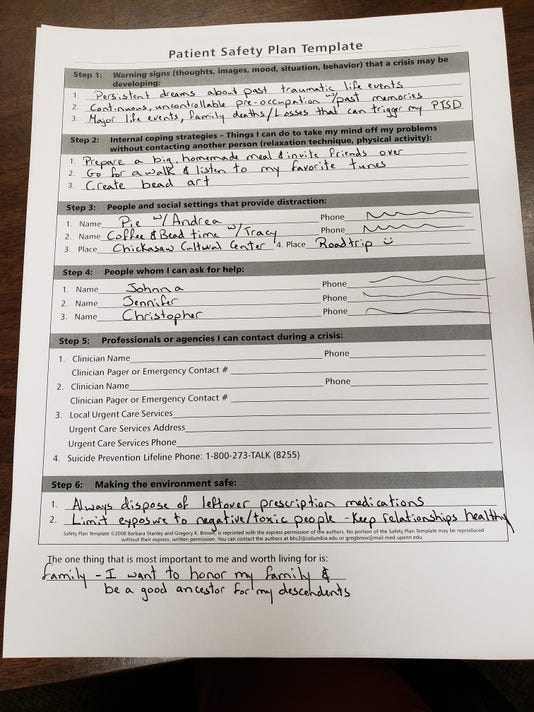 Patient Safety Plan Template
Step 1: Warning signs (thoughts, images, mood, situation, behavior) that a crisis may be
developing:
1. Persistent dreams about past traumatic life events
2. Continuous, uncontrollable pre-occupation w/past memories
3. Major life events, family deaths/Losses that can trigger my PTSD
Step 2: Internal coping strategies – Things I can do to take my mind off my problems
without contacting another person (relaxation technique, physical activity):
1. Prepare a big, homemade meal & invite friends over
2. Go for a walk & listen to my favorite tunes
3. Create bead art
Step 3: People and social settings that provide distraction:
1. Name Pie w/ Andrea Phone
2. Name Coffee & Bead time w/Tracy Phone
3. Place Chickasaw Cultural Center 4. Place Roadtrip
Step 4: People whom I can ask for help:
1. Name Johnna Phone
2. Name Jennifer Phone
3. Name Christopher Phone
Step 5: Professionals or agencies I can contact during a crisis:
1. Clinician Name Phone
Clinician Pager or Emergency Contact #
2. Clinician Name Phone
Clinician Pager or Emergency Contact #
3. Local Urgent Care Services
Urgent Care Services Address
Urgent Care Services Phone
4. Suicide Prevention Lifeline Phone: 1-800-273-TALK (8255)
Step 6: Making the environment safe:
1. Always dispose of leftover prescription medications
2. Limit exposure to negative/toxic people - Keep relationships healthy
Safety Plan Template ©2008 Barbara Stanley and Gregory K. Brown, is reprinted with the express permission of the authors. No portion of the Safety Plan Template may be reproduced
without their express, written permission. You can contact the authors at bhs2@columbia.edu or gregbrow@mail.med.upenn.edu.
The one thing that is most important to me and worth living for is:
family - I want to honor my family &
be a good ancestor for my descendents